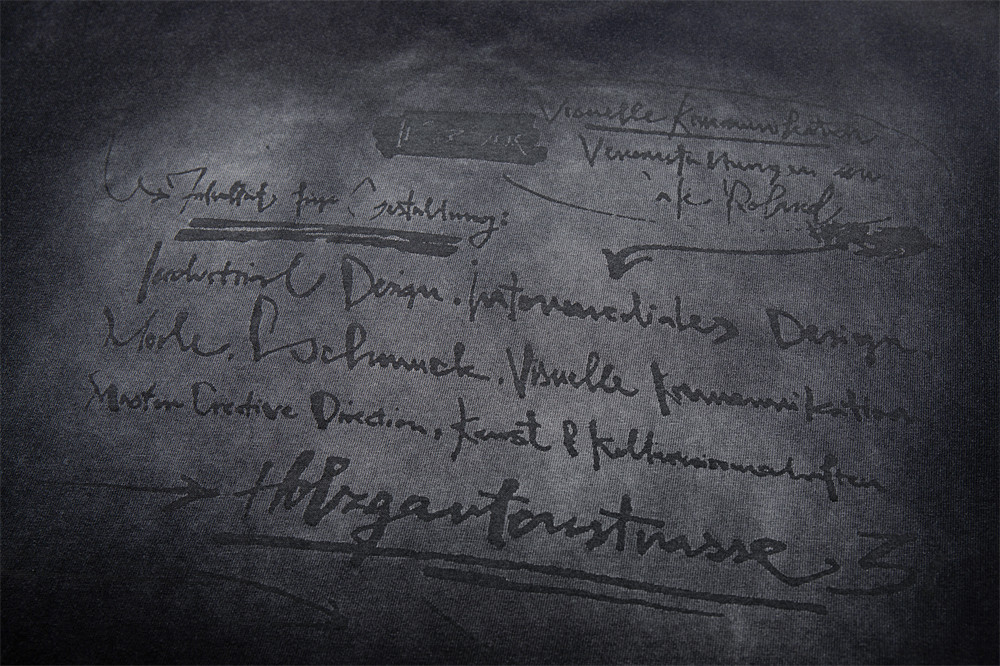 Visuelle Kommunikation
Veranstaltungen an
Roland
Fakultät für Gestaltung:
Industrial Design, Intermediales Design,
Mode, Schmuck, Visuelle Kommunikation
Master Creative Direction, Kunst & Kulturwissenschaften
Holzgartenstrasse 3